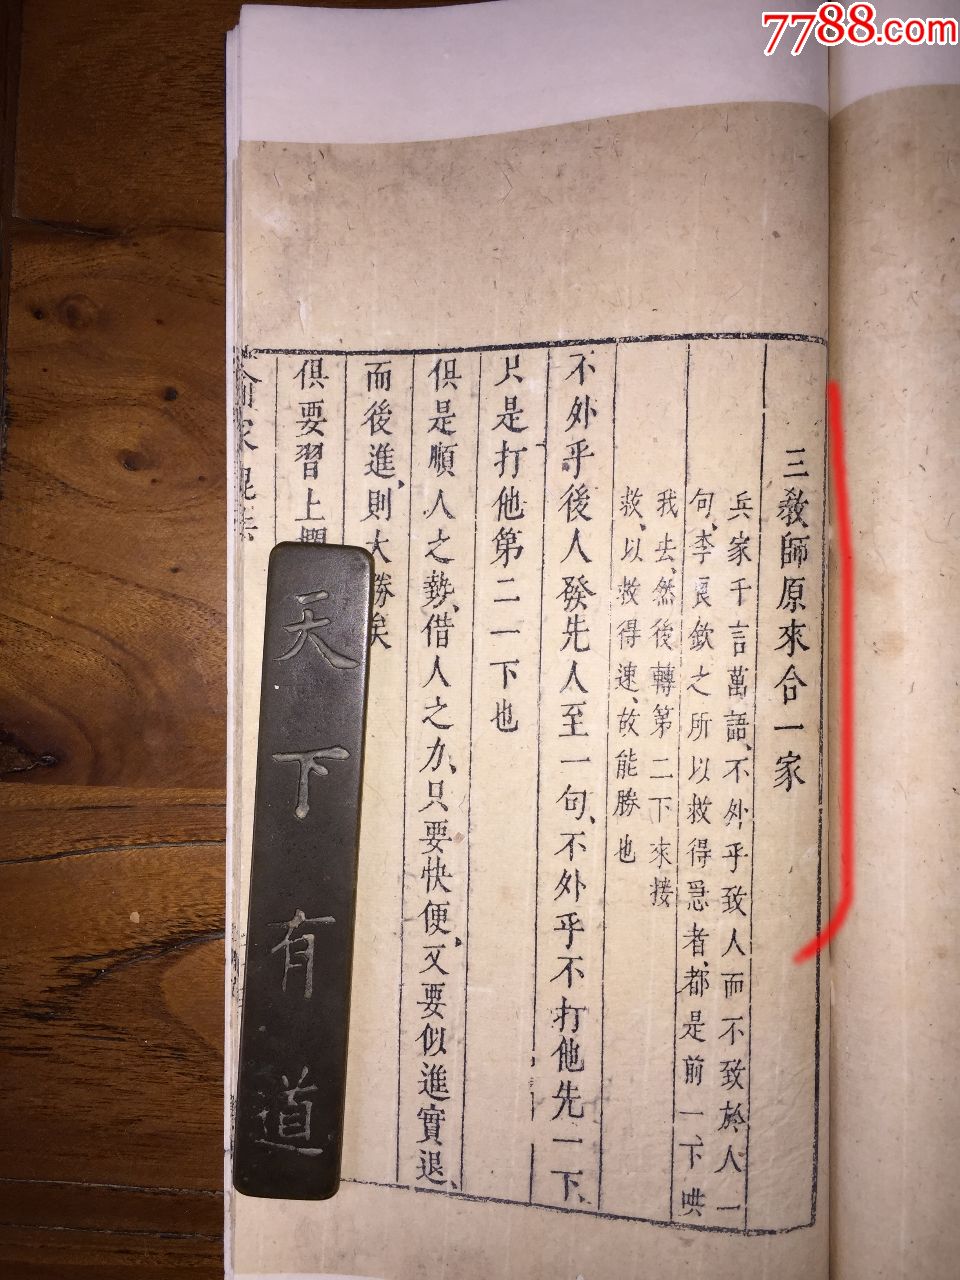 7788.com
三教師原來合一家
兵家千言萬語、不外乎致人而不致於人一
句、李良欽之所以救得急者、都是前一下哄
我去、然後轉第二下來接
救、以救得速、故能勝也
不外乎後人發先人至一句、不外乎不打他先一下、
只是打他第二一下也
俱是順人之勢、借人之力、只要快便、又要似進實退、
而後進、則大勝矣
俱要習上
天下有道